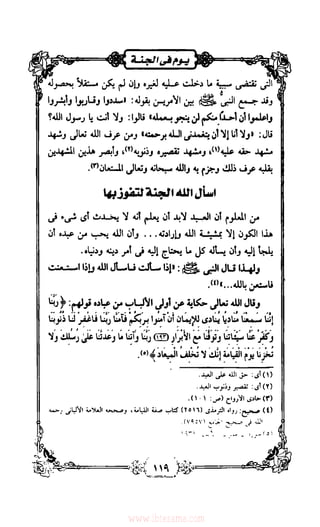 يوم فى الجنة
التى تقتضى سببية ما دخلت عليه لغيره وإن لم يكن مستقلاً بحصوله
وقد جمع النبى ﷺ بين الأمرين بقوله: «سددوا وقاربوا وأبشروا
واعلموا أن أحداً منكم لن ينجو بعمله» قالوا: ولا أنت يا رسول الله؟
قال: «ولا أنا إلا أن يتغمدنى الله برحمته» ومن عرف الله تعالى وشهد
مشهد حقه عليه(١)، ومشهد تقصيره وذنوبه(٢)، وأبصر هذين المشهدين
بقلبه عرف ذلك وجزم به والله سبحانه وتعالى المستعان(٣).
اسأل الله الجنة لتفوز بها
من المعلوم أن العبد لابد أن يعلم أنه لا يحدث أى شىء فى
هذا الكون إلا بمشيئة الله وإرادته... وأن الله يحب من عبده أن
يلجأ إليه وأن يسأله كل ما يحتاج إليه فى أمر دينه ودنياه.
ولهذا قال النبى ﷺ: «إذا سألت فاسأل الله وإذا استعنت
فاستعن بالله...»(٤).
وقال الله وتعالى حكاية عن أولى الألباب من عباده قولهم: ﴿رَبَّنَا
إِنَّنَا سَمِعْنَا مُنَادِيًا يُنَادِي لِلإِيمَانِ أَنْ آمِنُوا بِرَبِّكُمْ فَآمَنَّا رَبَّنَا فَاغْفِرْ لَنَا ذُنُوبَنَا
وَكَفِّرْ عَنَّا سَيِّئَاتِنَا وَتَوَفَّنَا مَعَ الأَبْرَارِ (١٩٣) رَبَّنَا وَآتِنَا مَا وَعَدتَّنَا عَلَىٰ رُسُلِكَ وَلا
تُخْزِنَا يَوْمَ الْقِيَامَةِ إِنَّكَ لا تُخْلِفُ الْمِيعَادَ﴾(٥).
(١) أى: حق الله على العبد.
(٢) أى: تقصير وذنوب العبد.
(٣) حادى الأرواح (ص: ١٠١).
(٤) صحيح: رواه الترمذى (٢٥١٦) كتاب صفة القيامة، وصححه العلامة الألبانى رحمه
الله فى صحيح الجامع (٧٩٥٧).
(٥) سورة
١١٩
www.ibtesama.com